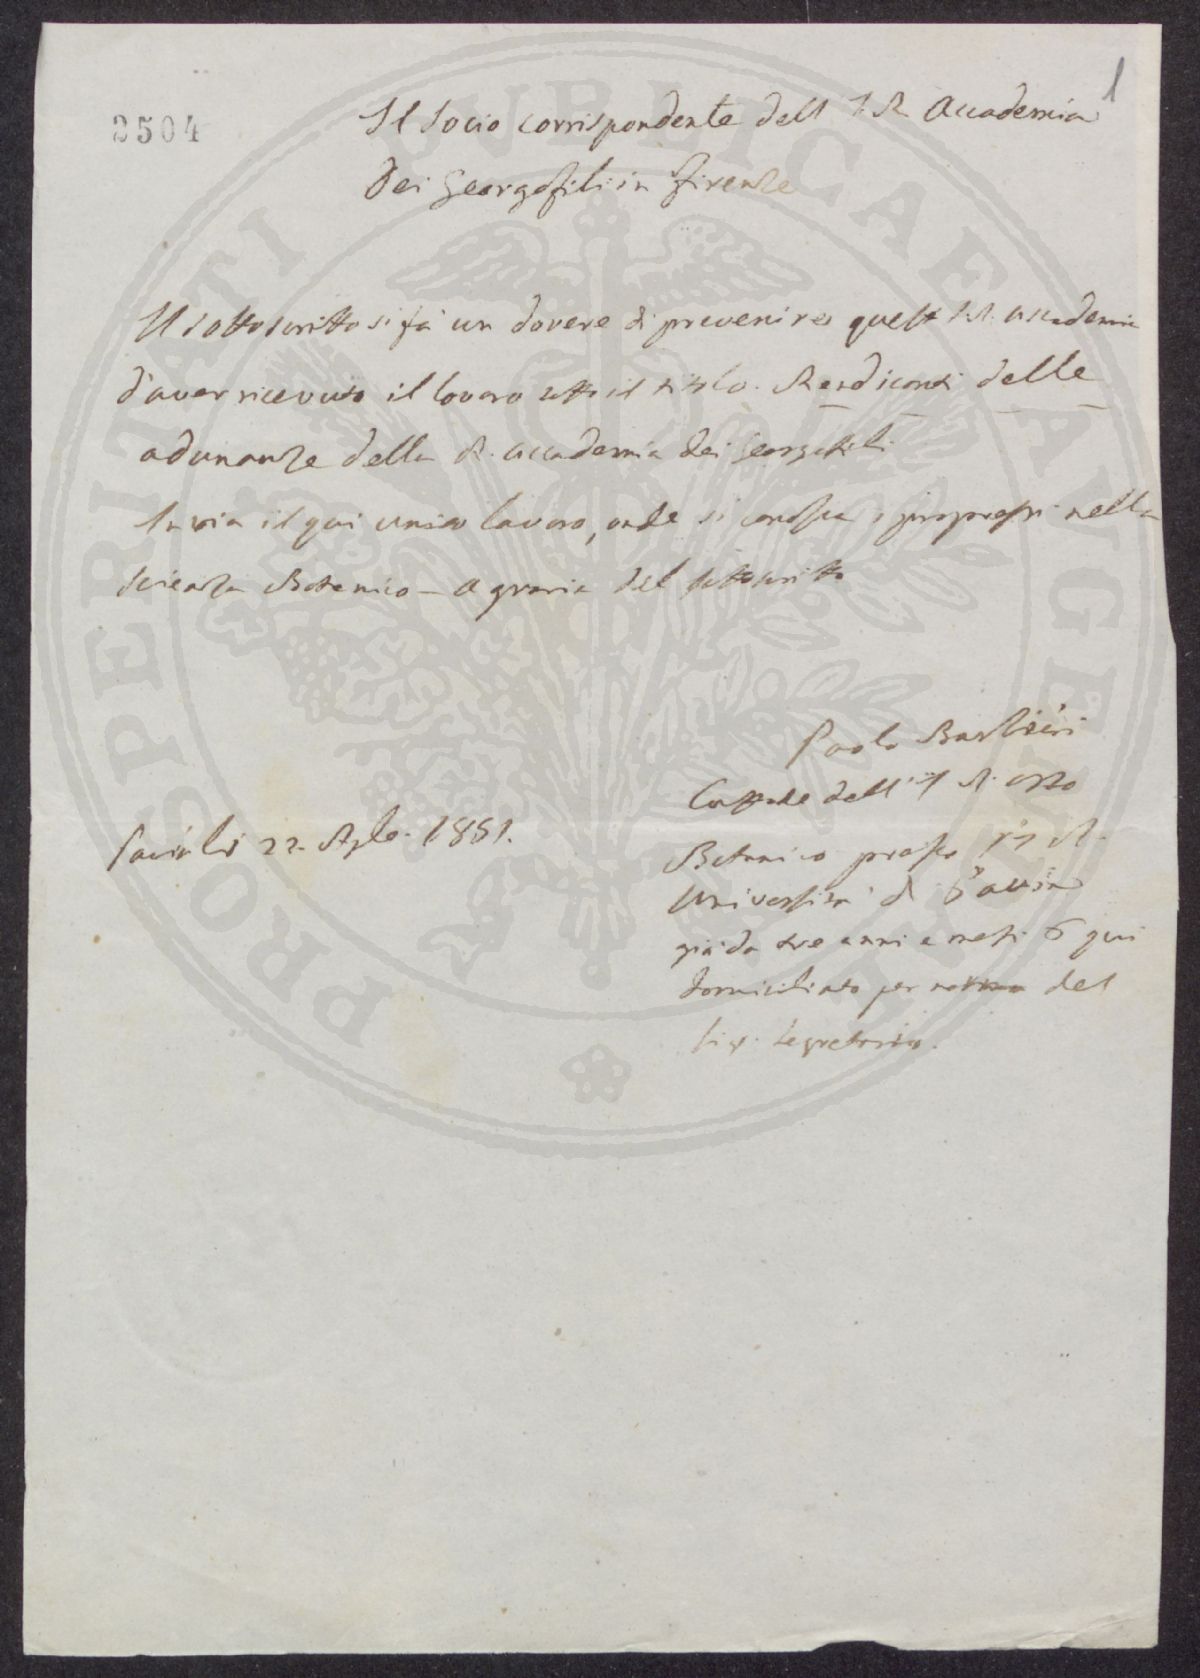 1
2504
Il Socio corrispondente dell I. R. Accademia
dei Georgofili in Firenze
Il sottoscritto si fà un dovere di prevenire quest I. R. accademia
d'aver ricevuto il lavoro sotto il titolo. Rendiconti delle
adunanze della R. accademia dei Georgofili.
Invia il qui unito lavoro, onde si conosca i progressi nella
scienza Botanico - Agraria del sottoscritto
Paolo Barbieri
Custode dell' I. R. Orto
Botanico presso l'I. R.
Università di Pavia
già da tre anni e mesi 6 qui
domiciliato per norma del
Sig. Segretario.
22. 1851.
PROSPERITATI PVBLICAE AVGENDAE